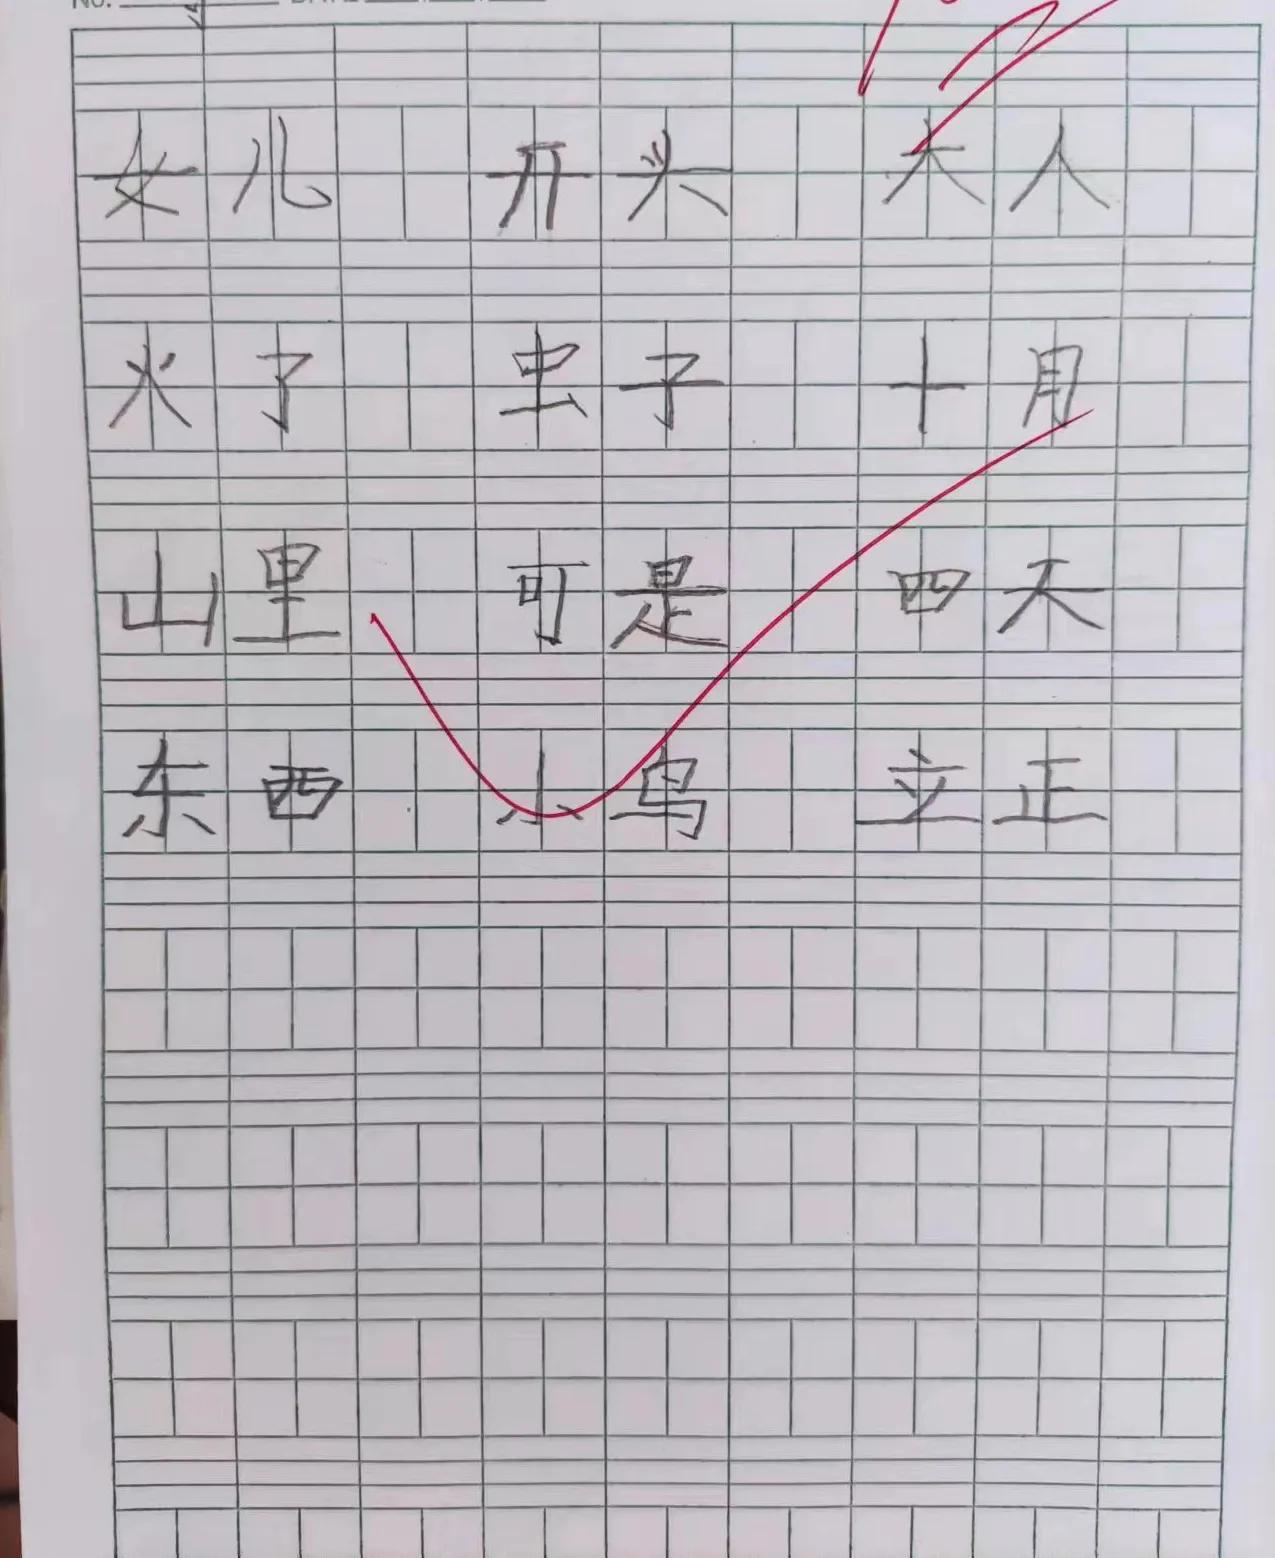 女儿 开头 大人
火了 虫子 十月
山里 可是 四天
东西 小鸟 立正